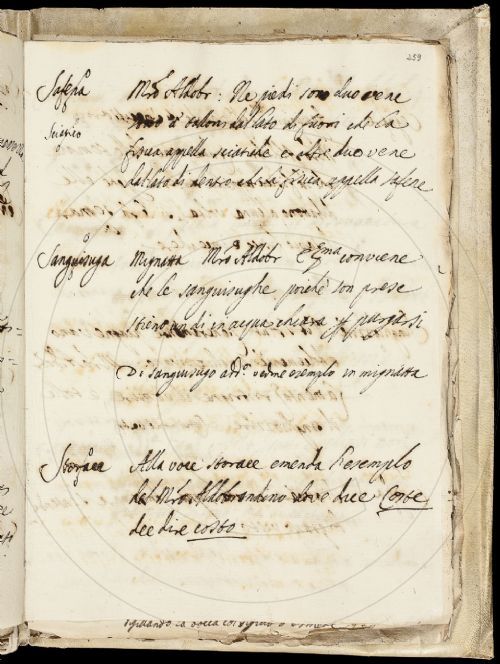 259
Safena Mro Aldobr: Ne piedi sono due vene
Sciatico verso i talloni dal lato di fuori che la
fisica appella sciatiche e altre due vene
dal lato di dentro che la fisica appella safene
Sanguisuga Mignatta Mro Aldobr conviene
che le sanguisughe poichè son prese
stieno un dì in acqua chiara p purgarsi
Di sanguisugo esemplo in mignatta
Storace Alla voce storace emenda l'esemplo
del Mro Aldobrandino dove dice Coste
dee dire costo